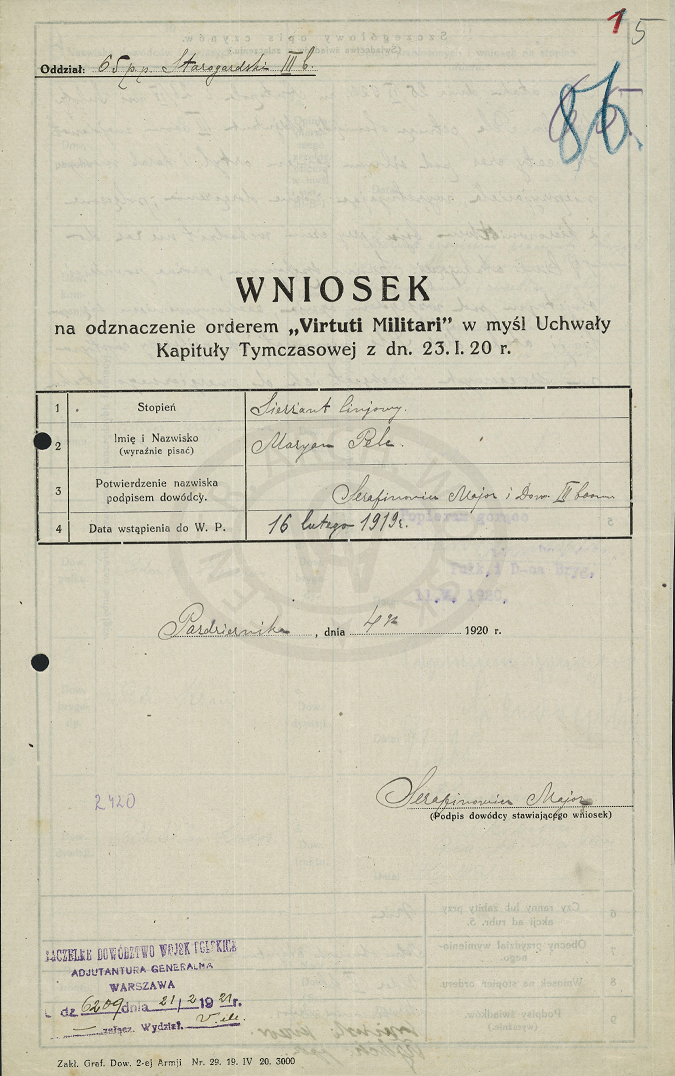 15
Oddział: 65 p.p. Starogardski III b.
86.
WNIOSEK
na odznaczenie orderem „Virtuti Militari" w myśl Uchwały
Kapituły Tymczasowej z dn. 23. I. 20 r.
1 Stopień Sierżant linjowy.
2 Imię i Nazwisko (wyraźnie pisać) Maryan Pelc.
3 Potwierdzenie nazwiska podpisem dowódcy. Serafinowicz Major i Dow. III baonu
4 Data wstąpienia do W. P. 16 lutego 1919 r.
Pazdziernika, dnia 4 1920 r.
2420
Serafinowicz Major
(Podpis dowódcy stawiającego wniosek)
NACZELNE DOWÓDZTWO WOJSK POLSKICH
ADJUTANTURA GENERALNA
WARSZAWA
dz. 6209 dnia 21/2 1921 r.
załącz. Wydział.
Zakł. Graf. Dow. 2-ej Armji Nr. 29. 19. IV 20. 3000